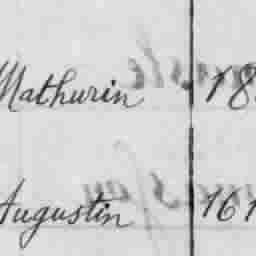 Mathurin 18
Augustin 161